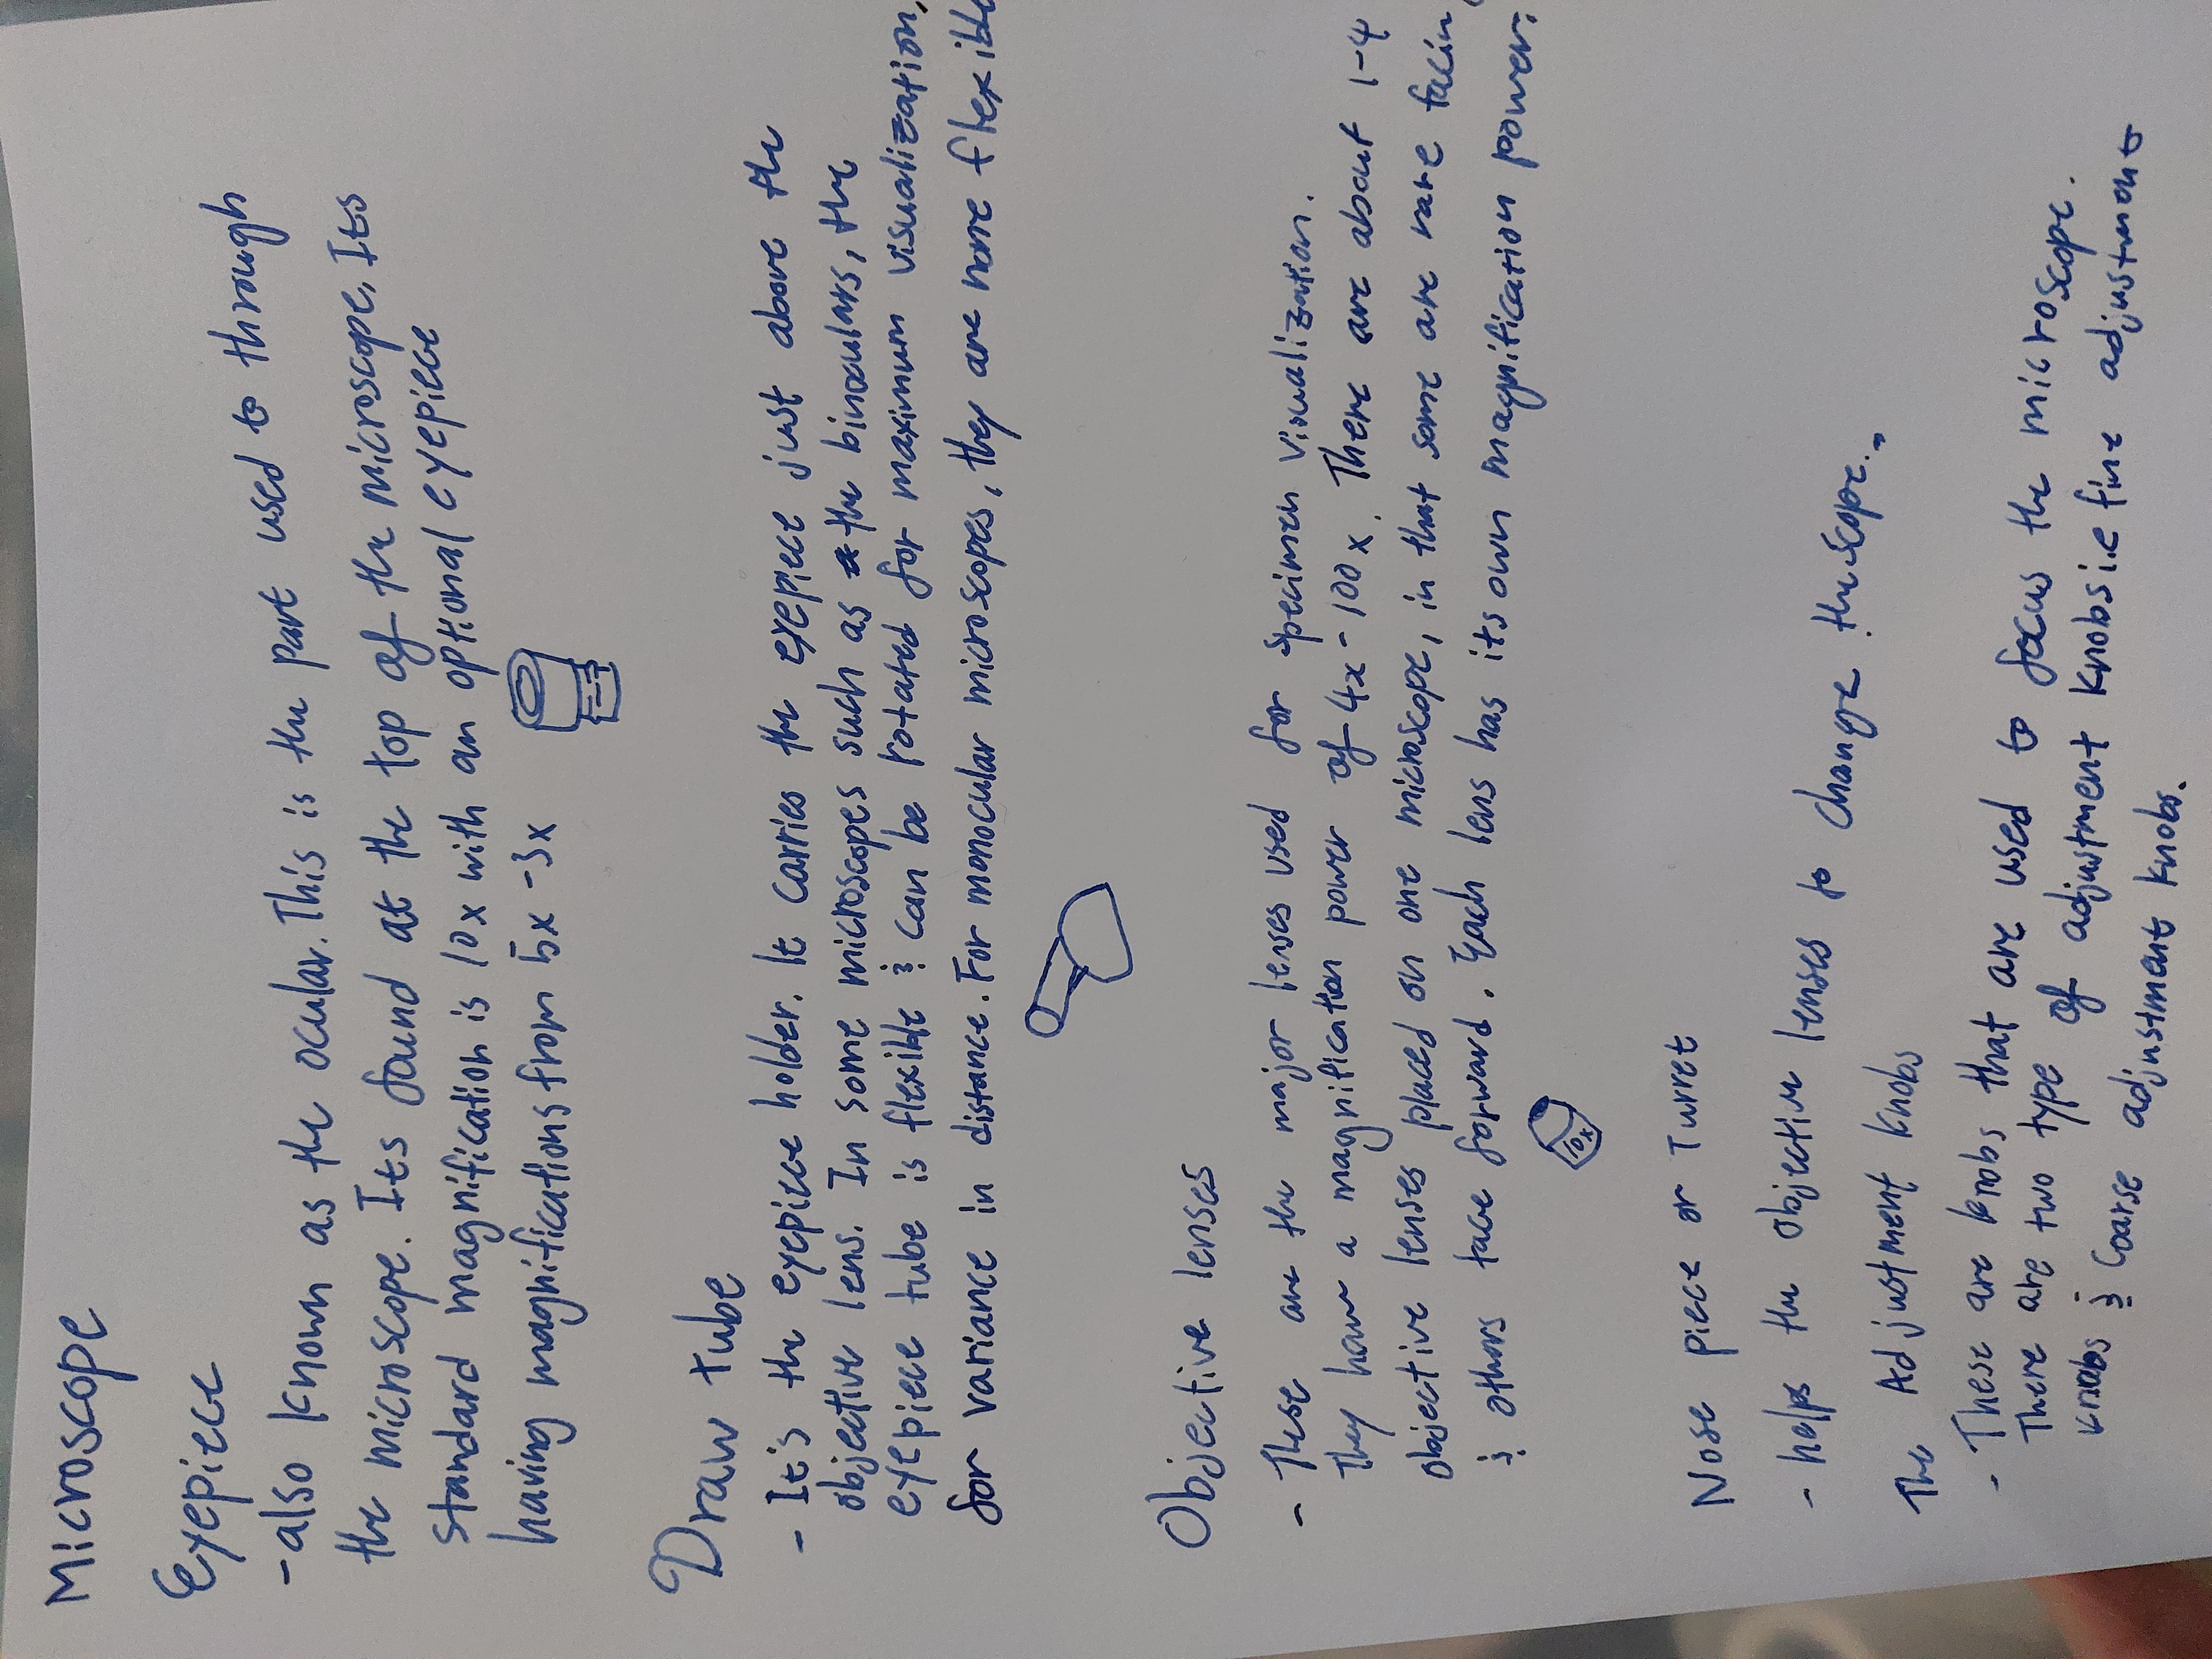 Microscope
Eyepiece
- also known as the ocular. This is the part used to through
the microscope. Its found at the top of the microscope, Its
standard magnification is 10x with an optional eyepiece
having magnifications from 5x -3x
Draw tube
- It's the eyepiece holder. It carries the eyepiece just above the
objective lens. In some microscopes such as the binoculars, the
eyepiece tube is flexible & can be rotated for maximum visualization,
for variance in distance. For monocular microscopes, they are none flexible
Objective lenses
- These are the major lenses used for specimen visualization.
They have a magnification power of 4x - 100x. There are about 1-4
objective lenses placed on one microscope, in that some are rare facing
& others face forward. Each lens has its own magnification power.
10x
Nose piece or Turret
- helps the objective lenses to change
The Adjustment knobs
- These are knobs that are used to focus the microscope.
There are two type of adjustment knobs ie fine adjustment
knobs & coarse adjustment knobs.